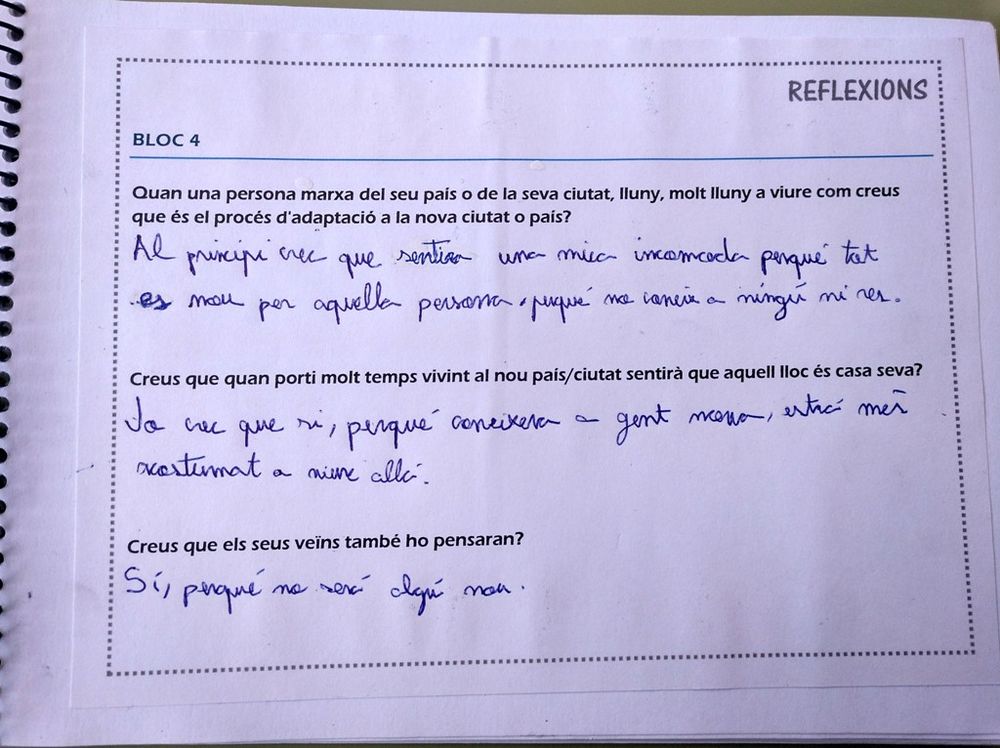 REFLEXIONS
BLOC 4
Quan una persona marxa del seu país o de la seva ciutat, lluny, molt lluny a viure com creus
que és el procés d'adaptació a la nova ciutat o país?
Al principi crec que sentira una mica incomoda perqué tot
es nou per aquella persona, perqué no coneix a ningú ni res.
Creus que quan porti molt temps vivint al nou país/ciutat sentirà que aquell lloc és casa seva?
Jo crec que si, perqué coneixera a gent nova, estrá més
acostumat a viure allá.
Creus que els seus veïns també ho pensaran?
Sí, perqué no será algú nou.